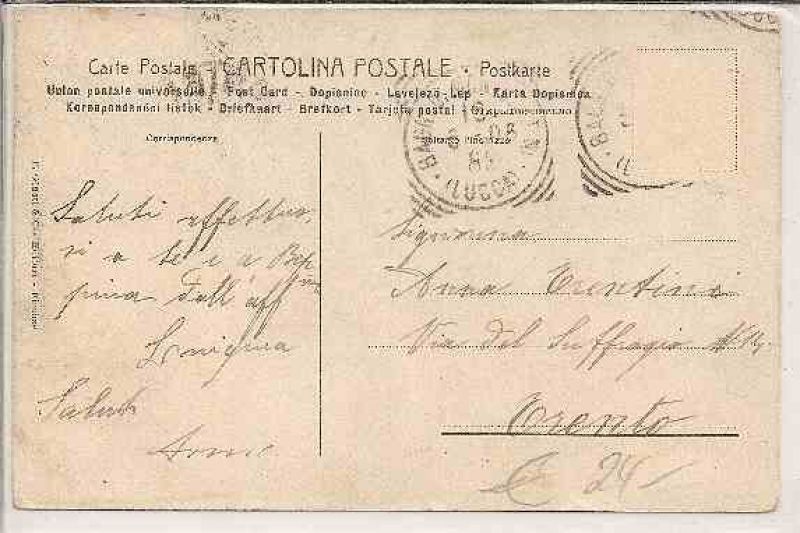 Carte Postale CARTOLINA POSTALE - Postkarte
Union postale universelle - Post Card - Dopisnice - Levelező-Lap - Karta Dopisnica
Korespondenční listok - Briefkaart - Brefkort - Tarjeta postal -
Corrispondenza
Saluti affettuo-
si a te e a Bep-
pina dall'aff
Luigina
Saluti
Signorina
Anna Trentini
Via del Suffragio N.
Trento
(LUCCA)
24